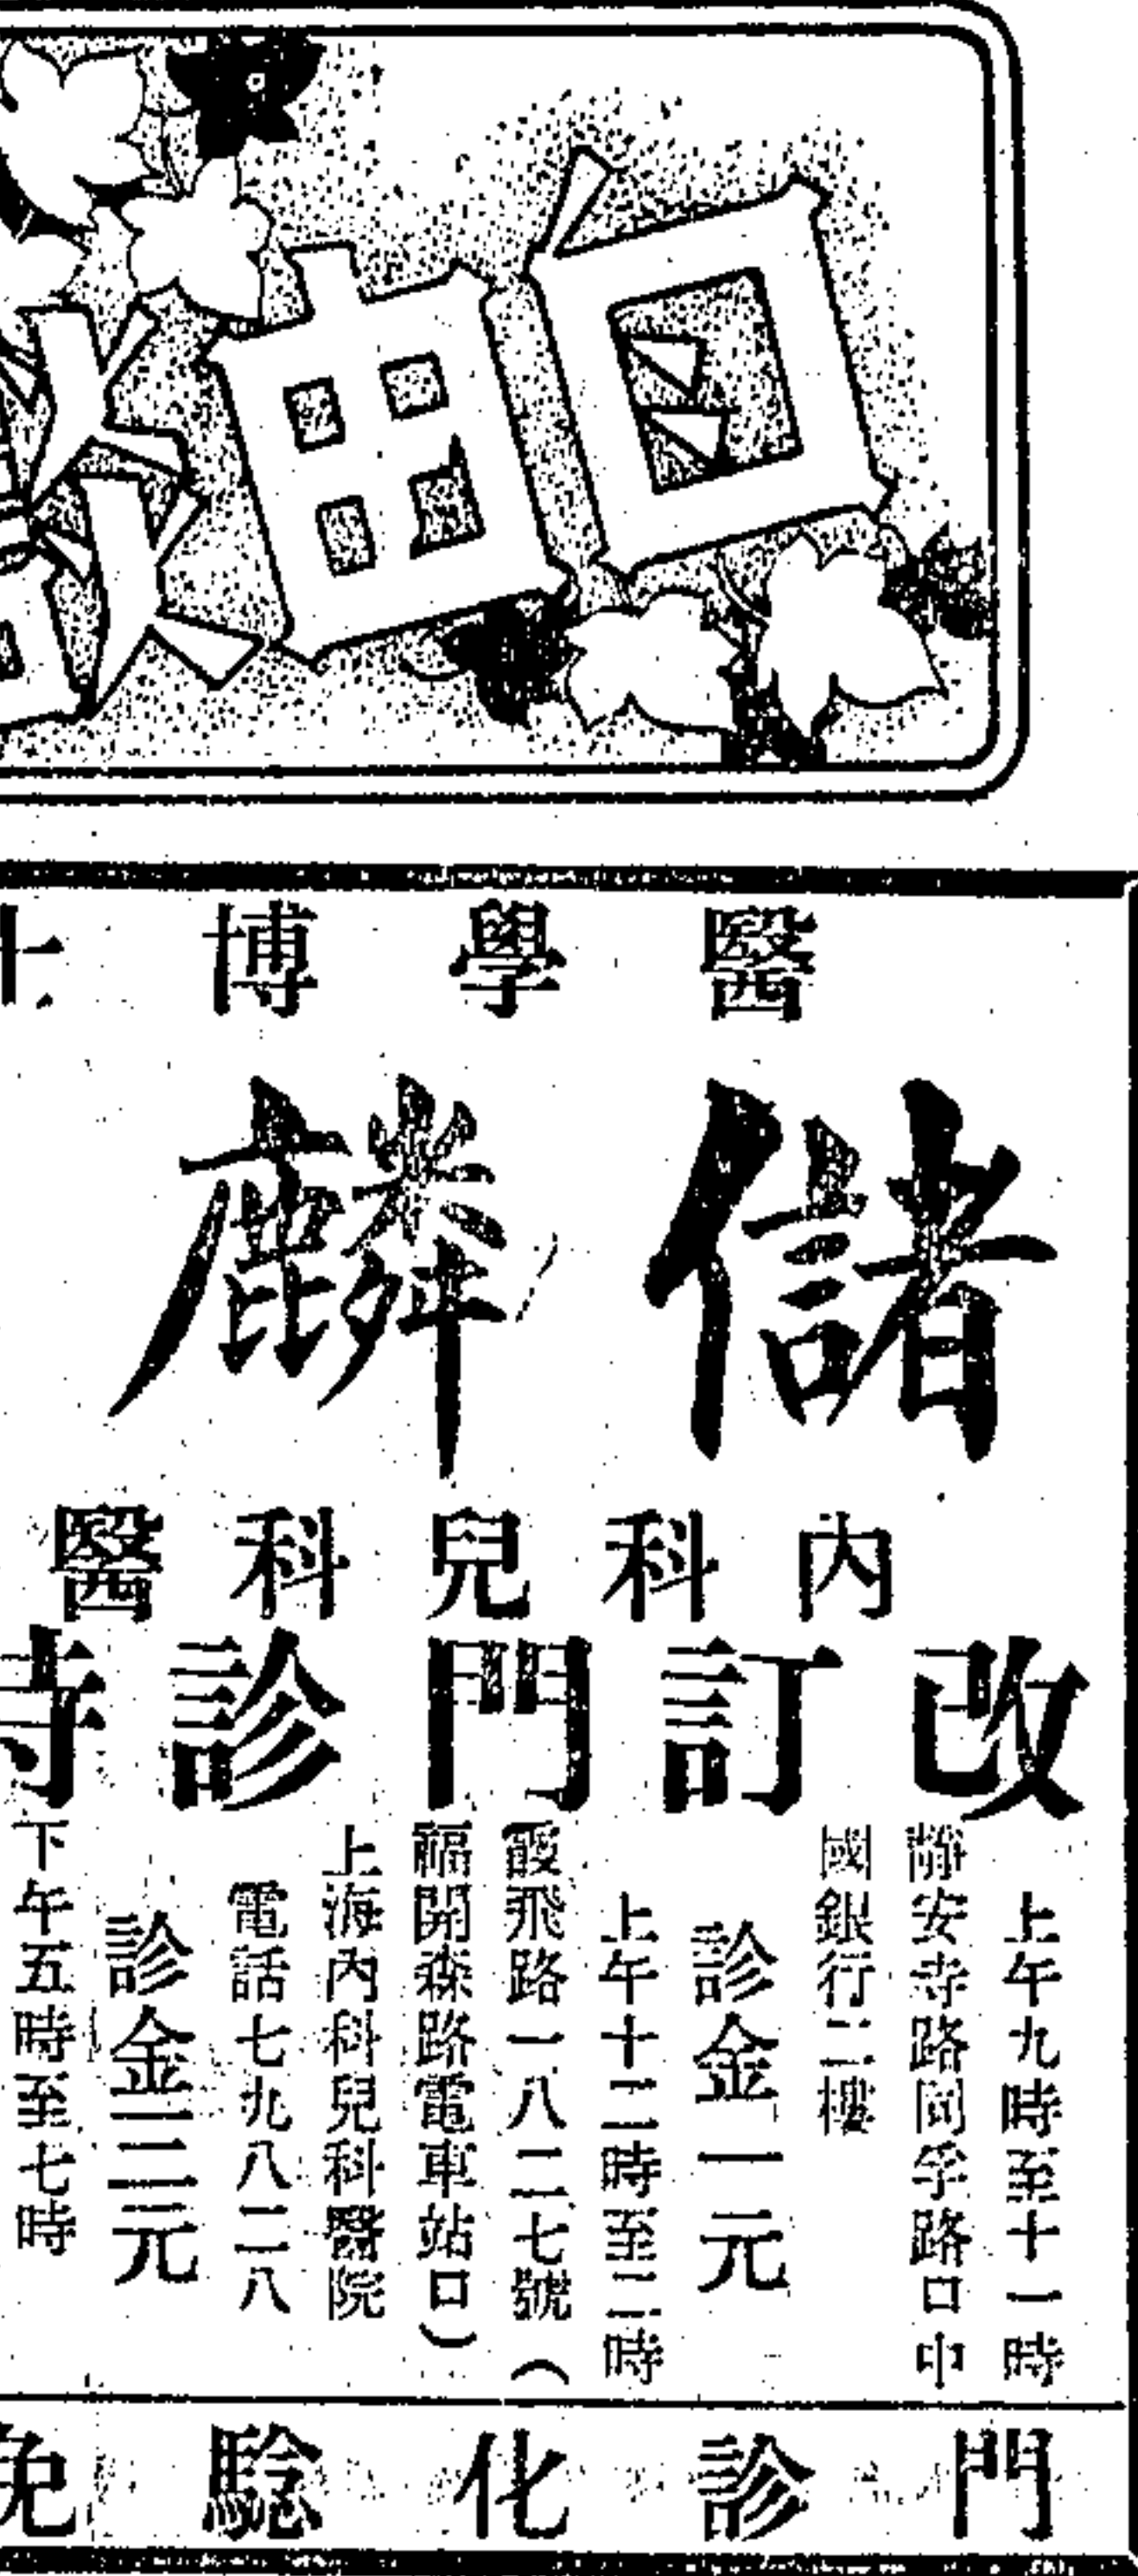 自由
醫學博士
儲麟
內科兒科醫
改訂門診時
上午九時至十一時
靜安寺路同孚路口中
國銀行二樓
診金一元
上午十二時至二時
霞飛路一八二七號（
福開森路電車站口）
上海內科兒科醫院
電話七九八二八
診金三元
下午五時至七時
門診化騐免